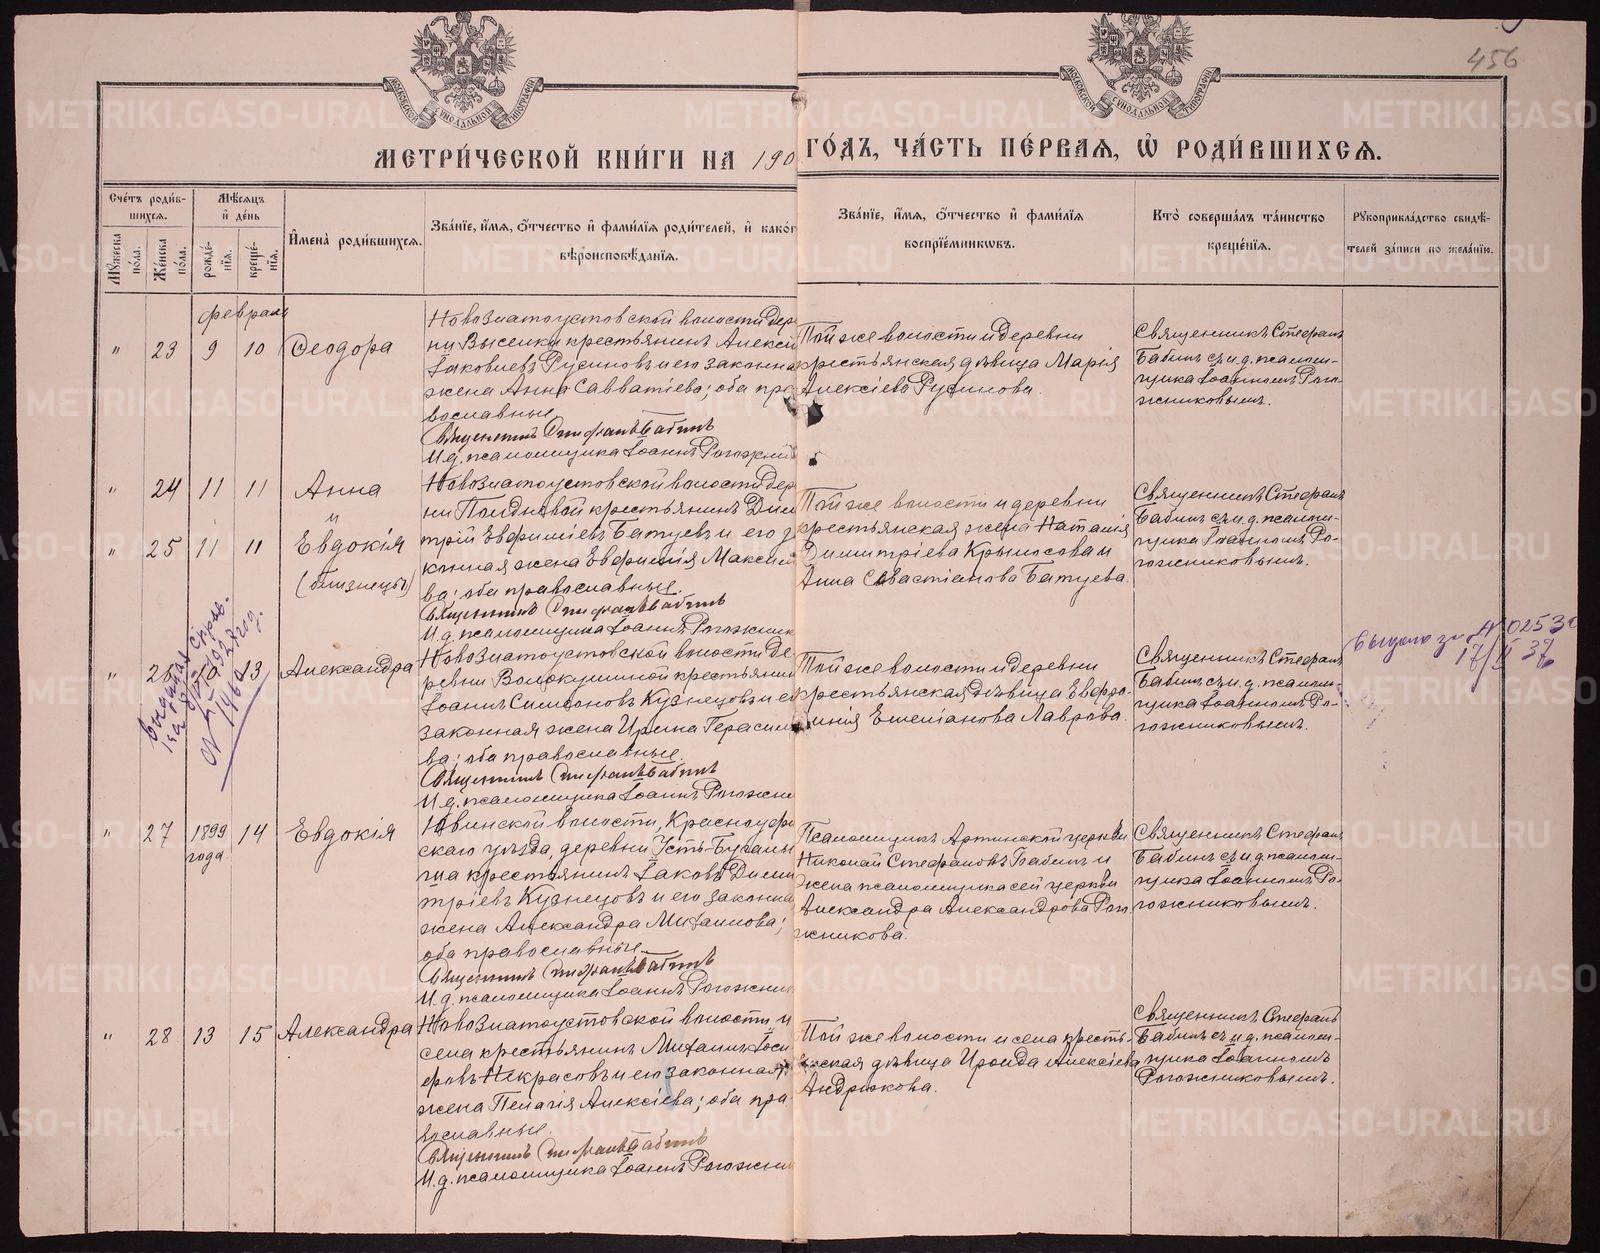 456
МОСКОВСКОЙ СѴНОДАЛЬНОЙ ТИПОГРАФІИ
МОСКОВСКОЙ СѴНОДАЛЬНОЙ ТИПОГРАФІИ
МЕТРИ́ЧЕСКОЙ КНИ́ГИ НА 190
ГО́ДЪ, ЧА́СТЬ ПЕ́РВАЯ, Ѡ РОДИ́ВШИХСѦ.
Сче́тъ роди́в-
шихсѧ.
Мꙋ́жеска по́ла.
Же́нска по́ла.
Мѣ́сѧцъ
и҆ де́нь
рожде́-
нїѧ.
креще́-
нїѧ.
И҆мена̀ роди́вшихсѧ.
Зва́нїе, и҆́мѧ, ѻ҆́тчество и҆ фами́лїѧ роди́телей, и҆ како́г
вѣроисповѣ́данїѧ.
Зва́нїе, и҆́мѧ, ѻ҆́тчество и҆ фами́лїѧ
воспрїе́мникѡвъ.
Кто̀ соверша́лъ та́инство
креще́нїѧ.
Рꙋкоприкла́дство свидѣ́-
телей за́писи по жела́нїю.
Февраль
" 23 9 10 Ѳеодора
Новозлатоустовской волости дер
ни Выселки крестьянинъ Алексі
Іаковлевъ Русиновъ и его законна
жена Анна Савватіева; оба пра
вославные.
Священникъ Стефанъ Бабинъ
И.д. псаломщика Іоаннъ Рогожник
Той же волости и деревни
крестьянская дѣвица Марія
Алексіева Русинова.
Священникъ Стефанъ
Бабинъ съ и.д. псалом-
щика Іоанномъ Рого-
жниковымъ.
" 24 11 11 Анна
и
" 25 11 11 Евдокія
(близнецы)
Новозлатоустовской волости дер
крестьянинъ Дим
трій Евфиміевъ Батуевъ и его за
конная жена Евфимія Максим
ва; оба православные.
Священникъ Стефанъ Бабинъ
И.д. псаломщика Іоаннъ Рогожник
Той же волости и деревни
крестьянская жена Наталія
Димитріева Крылосова и
Анна Севастіанова Батуева.
Священникъ Стефанъ
Бабинъ съ и.д. псалом-
щика Іоанномъ Ро-
гожниковымъ.
" 26 13 Александра
Новозлатоустовской волости де
ревни Волокушиной крестьянин
Іоаннъ Симеоновъ Кузнецовъ и е
законная жена Ирина Герасим
ва; оба православные.
Священникъ Стефанъ Бабинъ
И.д. псаломщика Іоаннъ Рогожни
Той же волости и деревни
крестьянская дѣвица Евфро-
синія Емеліанова Лаврова.
Священникъ Стефанъ
Бабинъ съ и.д. псалом-
щика Іоанномъ Ро-
гожниковымъ.
Выдано за № 02530
17/II 37
" 27 1899 года 14 Евдокія
Ювинской волости, Красноуфи
скаго уѣзда, деревни Усть-Бугалы
ша крестьянинъ Іаковъ Дими
тріевъ Кузнецовъ и его законна
жена Александра Михаилова;
оба православные.
Священникъ Стефанъ Бабинъ
И.д. псаломщика Іоаннъ Рогожник
Псаломщикъ Артинской церкви
Николай Стефановъ Бабинъ и
жена псаломщика сей церкви
Александра Александрова Рого
жникова.
Священникъ Стефанъ
Бабинъ съ и.д. псалом-
щика Іоанномъ Ро-
гожниковымъ.
" 28 13 15 Александра
Новозлатоустовской волости и
села крестьянинъ Михаилъ Іоси
фовъ Некрасовъ и его законная
жена Пелагія Алексіева; оба пра
вославные.
Священникъ Стефанъ Бабинъ
И.д. псаломщика Іоаннъ Рогожни
Той же волости и села кресть-
янская дѣвица Ираида Алексіева
Андрюкова.
Священникъ Стефанъ
Бабинъ съ и.д. псалом-
щика Іоанномъ
Рогожниковымъ.
METRIKI.GASO-URAL.RU